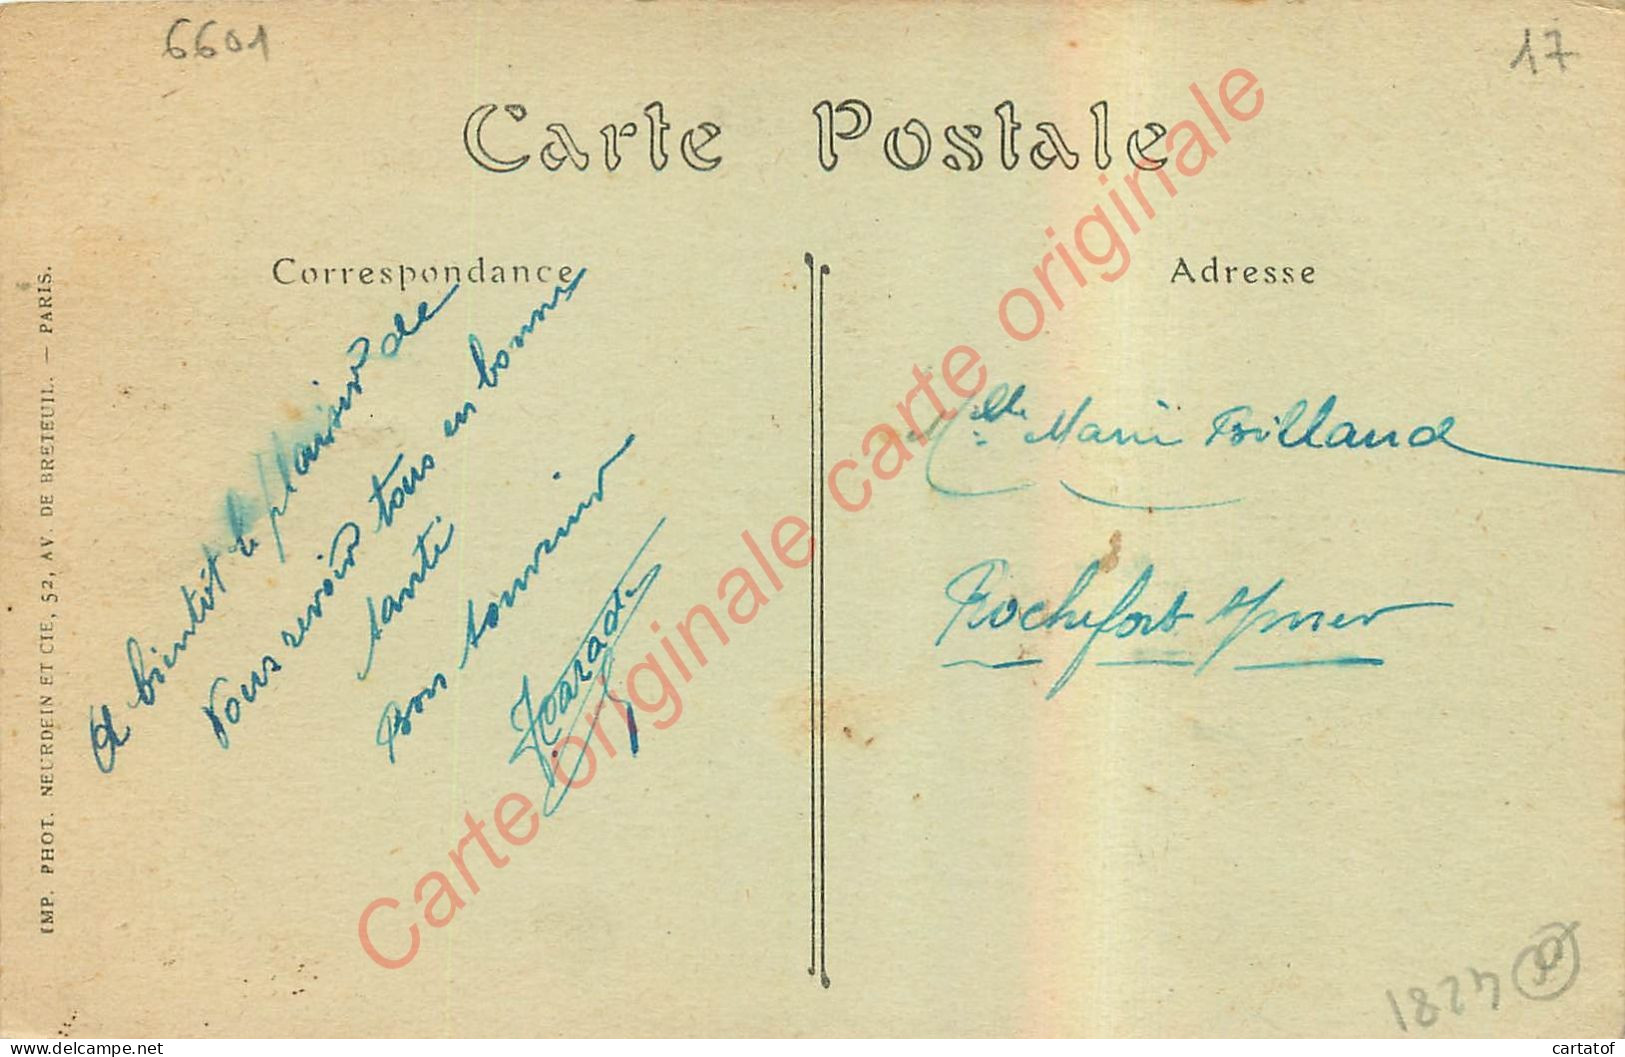 6601
17
Carte Postale
Correspondance
Adresse
A bientôt le plaisir de
vous revoir tous en bonne
santé
Bon souvenir
Melle Marie
Rochefort s/mer
IMP. PHOT. NEURDEIN ET CIE, 52, AV. DE BRETEUIL. — PARIS.
Carte originale carte originale
1824
cartatof